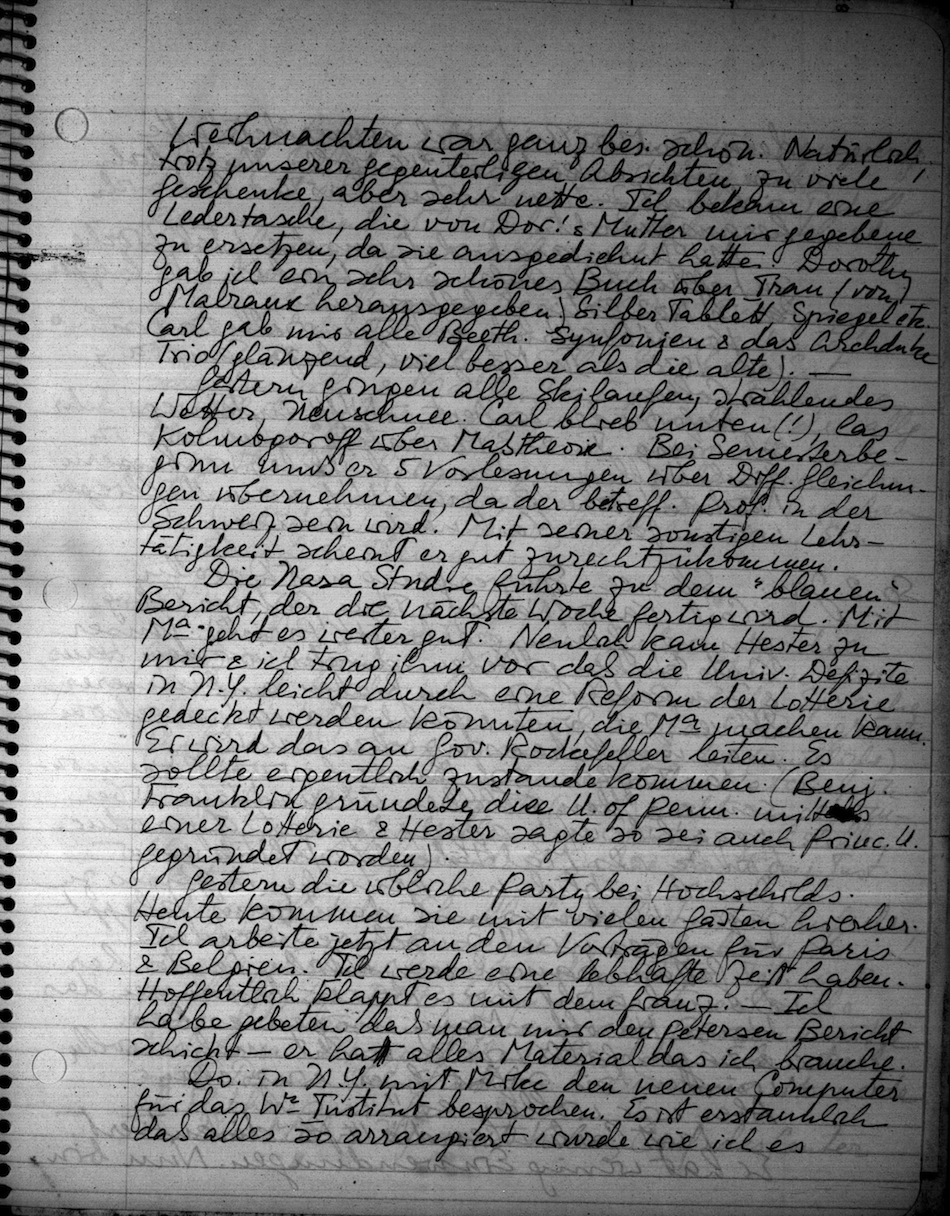 Weihnachten war ganz bes. schön. Natürlich,
trotz unserer gegenteiligen Absichten, zu viele
Geschenke, aber sehr nette. Ich bekam eine
Ledertasche, die von Dor.'s Mutter mir gegebene
zu ersetzen, da sie ausgedient hatte. Dorothy
gab ich ein sehr schönes Buch über Iran (von
Malraux herausgegeben) Silber Tablett, Spiegel etc.
Carl gab mir alle Beeth. Synfonien & das Archduke
Trio (glänzend, viel besser als die alte). —
Gestern gingen alle Skilaufen, strahlendes
Wetter, Neuschnee. Carl blieb unten (!), las
Kolmogoroff über Maßtheorie. Bei Semesterbe-
ginn muß er 5 Vorlesungen über Diff. Gleichun-
gen übernehmen, da der betreff. Prof. in der
Schweiz sein wird. Mit seiner sonstigen Lehr-
tätigkeit scheint er gut zurechtzukommen.
Die Nasa Studie führte zu dem "blauen"
Bericht, der die nächste Woche fertig wird. Mit
Ma geht es weiter gut. Neulich kam Hester zu
mir & ich trug ihm vor daß die Univ. Defizite
in N.Y. leicht durch eine Reform der Lotterie
gedeckt werden könnten, die Ma machen kann.
Er wird das an Gov. Rockefeller leiten. Es
sollte eigentlich zustande kommen. (Benj.
Franklin gründete die U. of Penn. mittels
einer Lotterie & Hester sagte so sei auch Princ. U.
gegründet worden).
Gestern die übliche Party bei Hochschilds.
Heute kommen sie mit vielen Gästen hierher.
Ich arbeite jetzt an den Vorträgen für Paris
& Belgien. Ich werde eine lebhafte Zeit haben.
Hoffentlich klappt es mit dem Franz. — Ich
habe gebeten daß man mir den Petersen Bericht
schickt — er hat alles Material das ich brauche.
Do. in N.Y. mit Mike den neuen Computer
für das Wi Institut besprochen. Es ist erstaunlich
daß alles so arrangiert wurde wie ich es